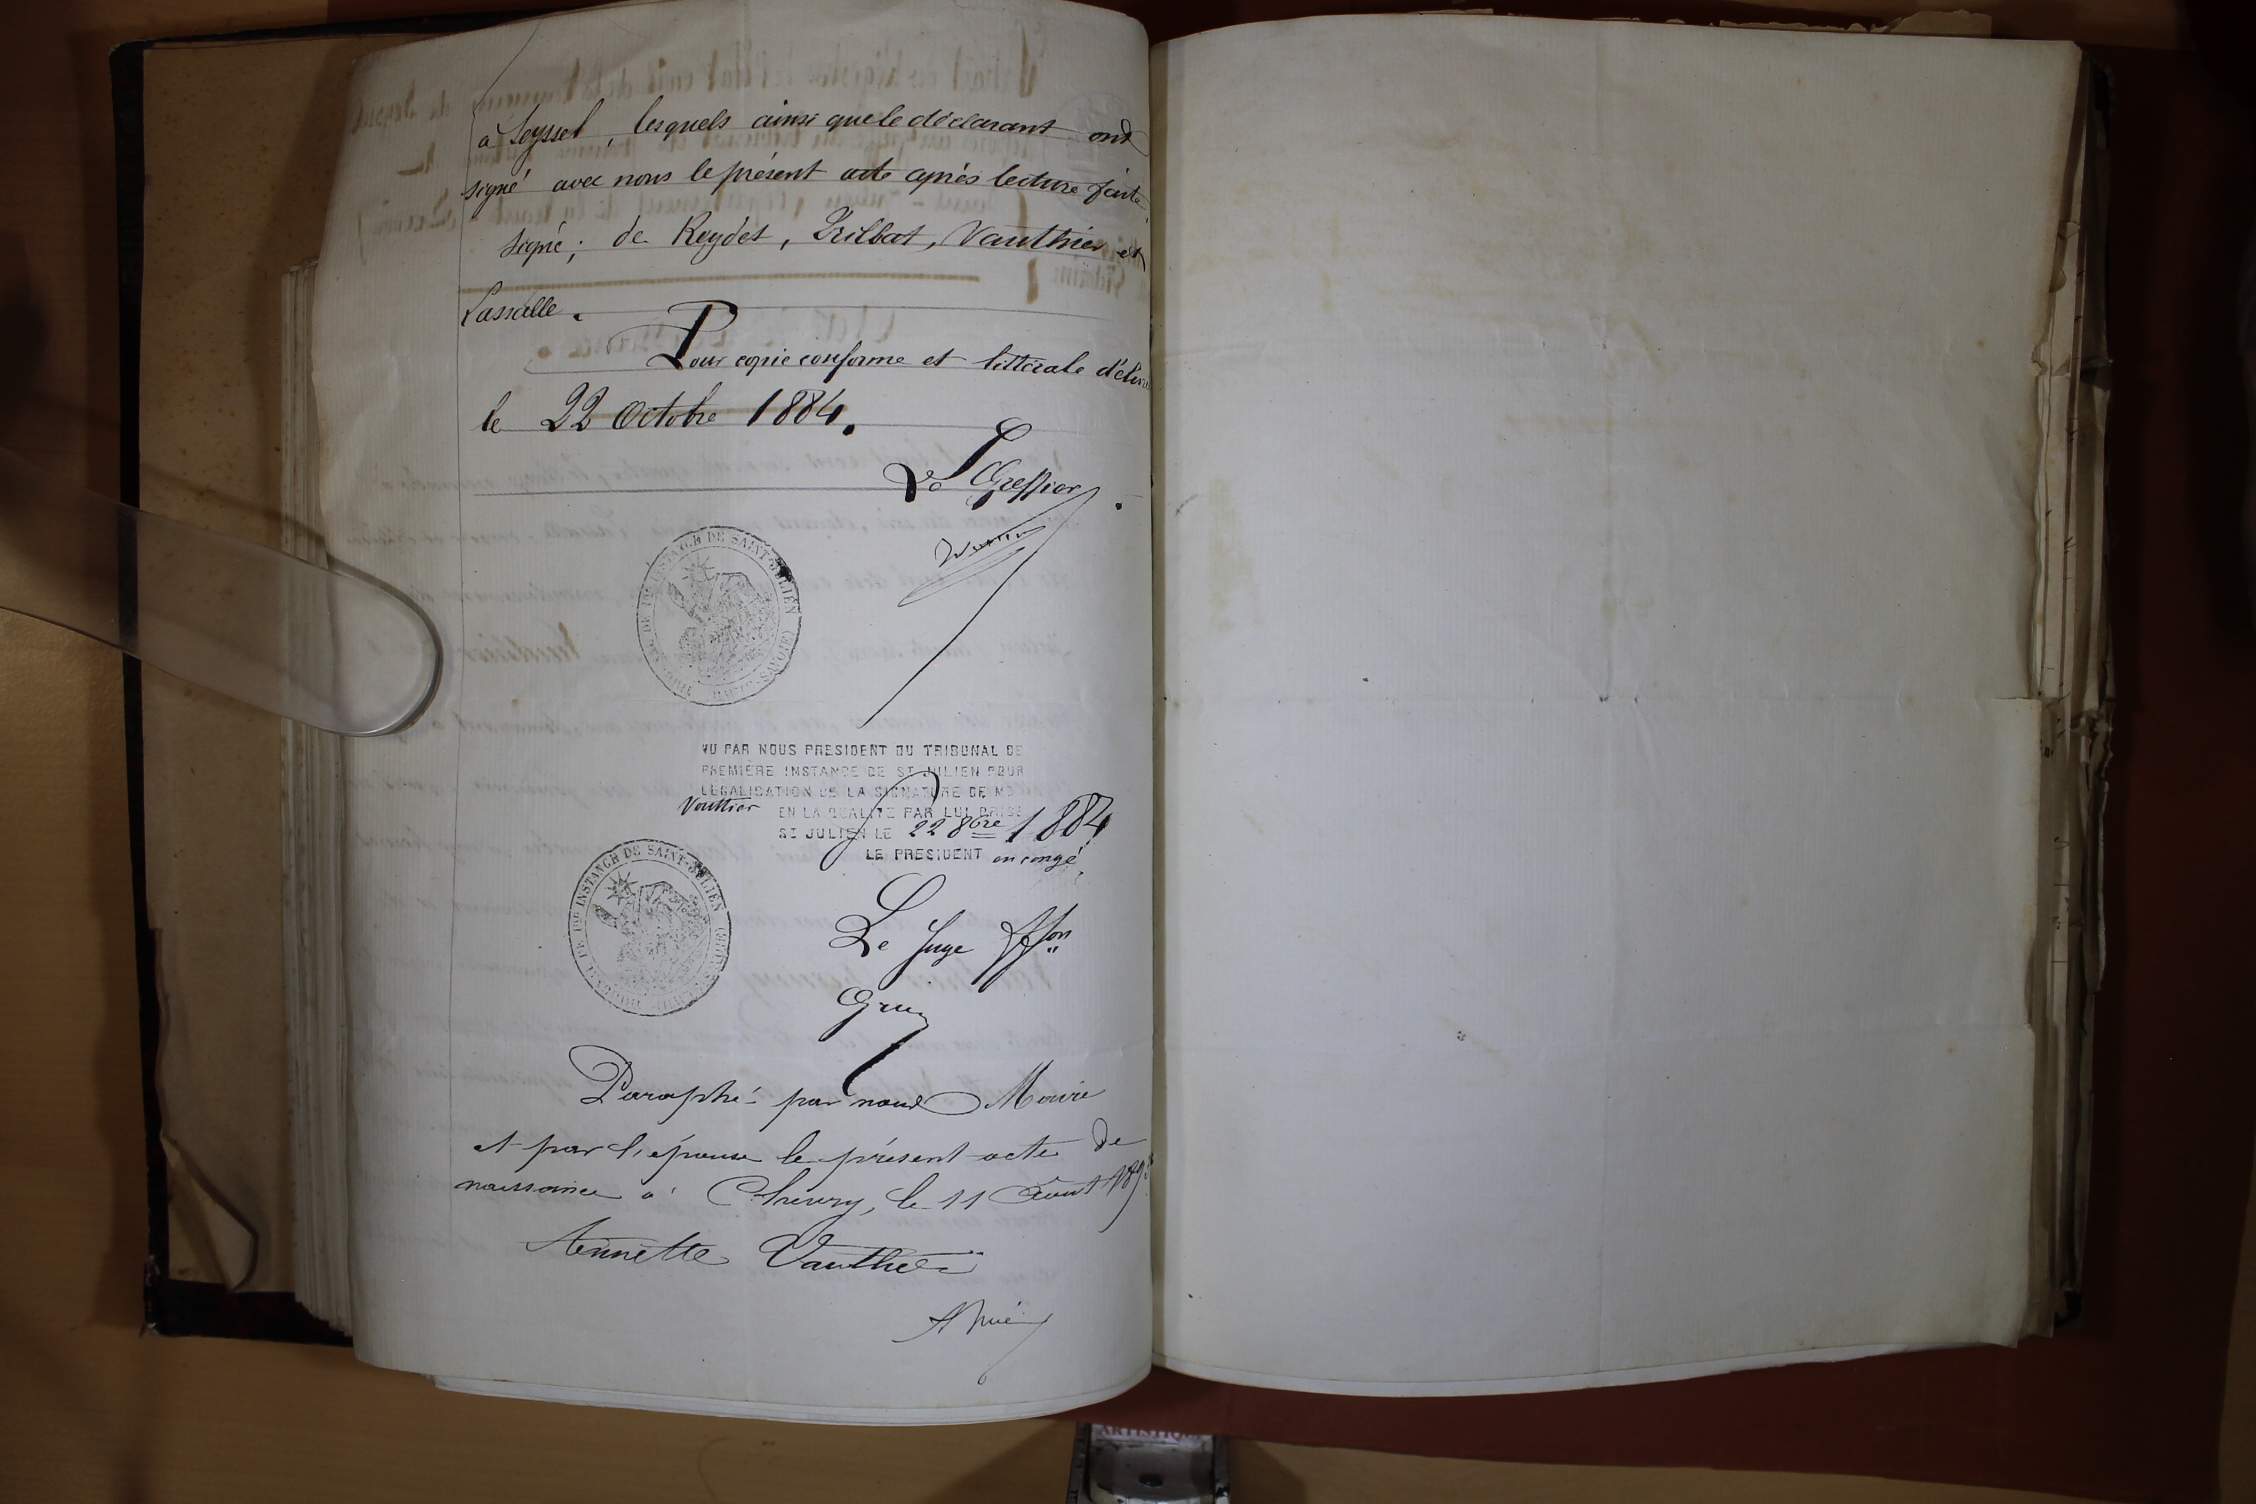 à Seyssel, lesquels ainsi que le déclarant ont
signé avec nous le présent acte après lecture faite.
signé; de Reydet, Trilbat, Vauthier et
Lassalle.
Pour copie conforme et littérale délivré
le 22 Octobre 1884.
Le Greffier
INSTANCE DE SAINT-JULIEN (HAUTE-SAVOIE)
VU PAR NOUS PRESIDENT DU TRIBUNAL DE
PREMIÈRE INSTANCE DE ST JULIEN POUR
LEGALISATION DE LA SIGNATURE DE Mr
Vauthier EN LA QUALITE PAR LUI PRISE
ST JULIEN LE 22 8bre 1884
LE PRESIDENT en congé
DE 1RE INSTANCE DE SAINT-JULIEN
Le Juge
Paraphé par nous Maire
et par l'épouse le présent acte de
naissance à Chevry, le 11 Août
Annette Vauthier